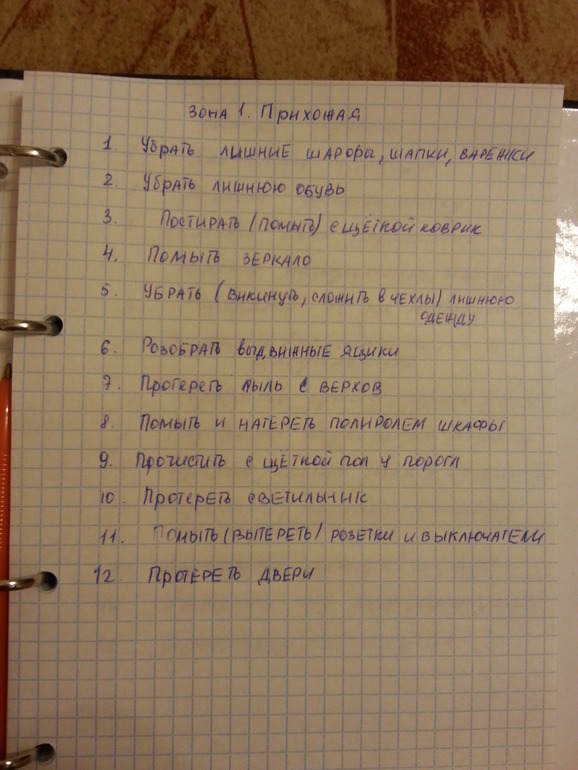 Зона 1. Прихожая
1 Убрать лишние шарфы, шапки, варежки
2 Убрать лишнюю обувь
3. Постирать (помыть) с щёткой коврик
4. Помыть зеркало
5. Убрать (викинуть, сложить в чехлы) лишнюю
одежду
6. Розобрать выдвижные ящики
7. Протереть пыль с верхов
8. Помыть и натереть полиролем шкафы
9. Прочистить с щёткой пол у порога
10. Протереть светильник
11. Помыть (вытереть) розетки и выключатели
12. Протереть двери